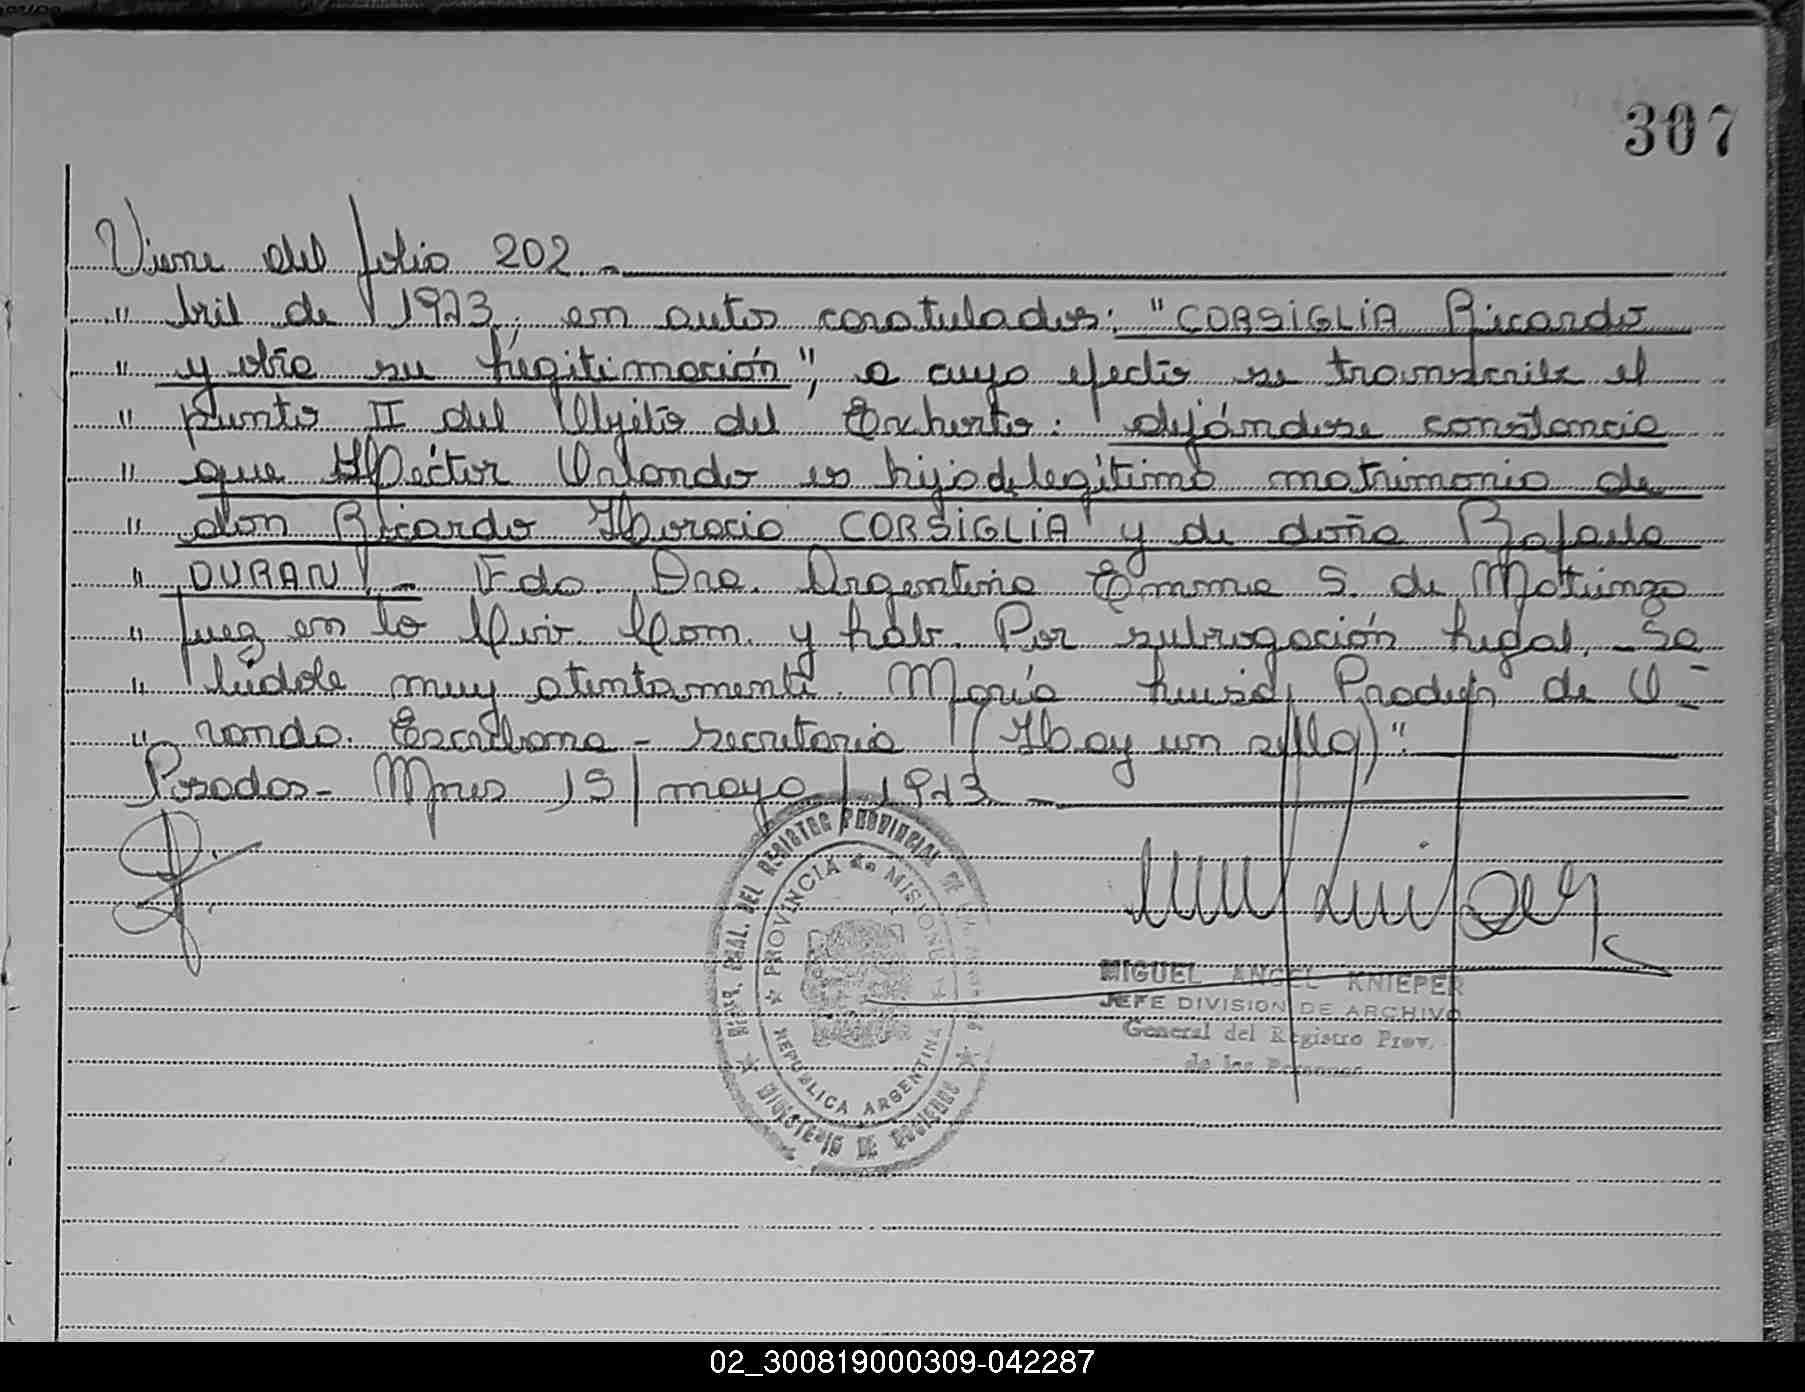 307
Viene del folio 202.-
" bril de 1973, en autos caratulados: "CORSIGLIA Ricardo
" y otra su Legitimación", a cuyo efecto se transcribe el
" punto II del Objeto del Exhorto: dejándose constancia
" que Héctor Orlando es hijo de legítimo matrimonio de
" don Ricardo Horacio CORSIGLIA y de doña Rafaela
" DURAN".- Fdo Dra. Argentina Emma S. de
" Juez en lo Civ. Com. y Lab. Por subrogación Legal.- Sa
" lúdole muy atentamente. María Luisa de O-
" rando. Escribana - Secretaria (Hay un sello)".
Posadas - Mnes 15/mayo/1973.-
DIREC. GRAL. DEL REGISTRO PROVINCIAL DE LAS PERSONAS
PROVINCIA de MISIONES
REPUBLICA ARGENTINA
MINISTERIO DE GOBIERNO
MIGUEL ANGEL KNIEPER
JEFE DIVISION DE ARCHIVO
General del Registro Prov.
de las Personas
02_300819000309-042287